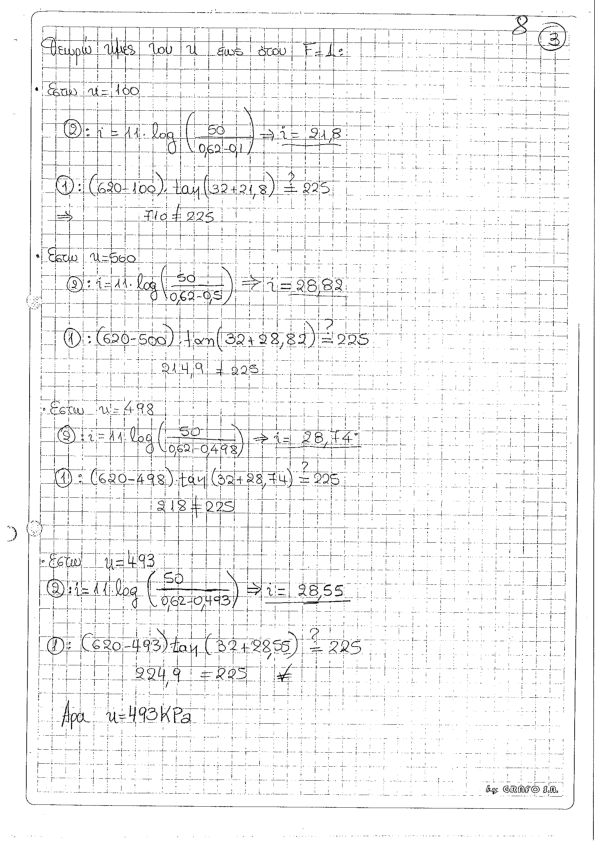 8 3
Θεωρώ τιμές του u εως ότου F=1:
• Εστω u=100
②: i = 11·log (50 / 0,62-0,1) ⇒ i = 21,8
①: (620-100)·tan(32+21,8) ?= 225
⇒ 710 ≠ 225
• Εστω u=500
②: i = 11·log (50 / 0,62-0,5) ⇒ i = 28,82
①: (620-500)·tan(32+28,82) ?= 225
214,9 ≠ 225
• Εστω u=498
②: i = 11·log (50 / 0,62-0,498) ⇒ i = 28,74
①: (620-498)·tan(32+28,74) ?= 225
218 ≠ 225
• Εστω u=493
②: i = 11·log (50 / 0,62-0,493) ⇒ i = 28,55
①: (620-493)tan(32+28,55) ?= 225
224,9 = 225
Αρα u=493KPa
by GRAFO S.A.